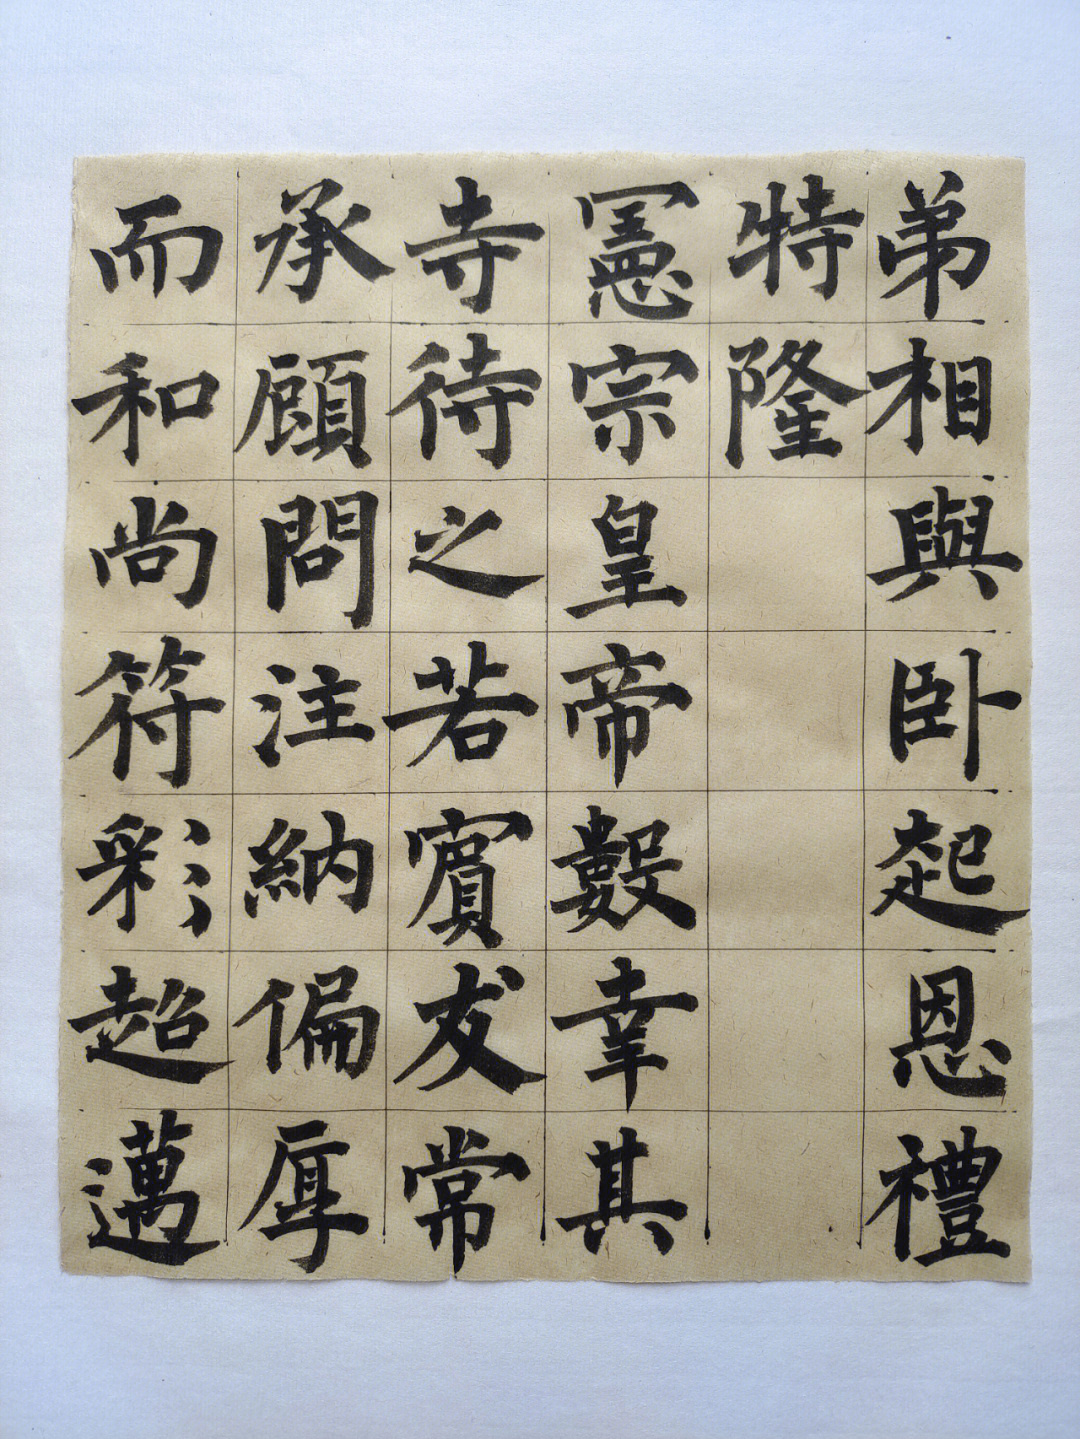 弟相與卧起恩禮
特隆
憲宗皇帝數幸其
寺待之若賓友常
承顧問注納偏厚
而和尚符彩超邁